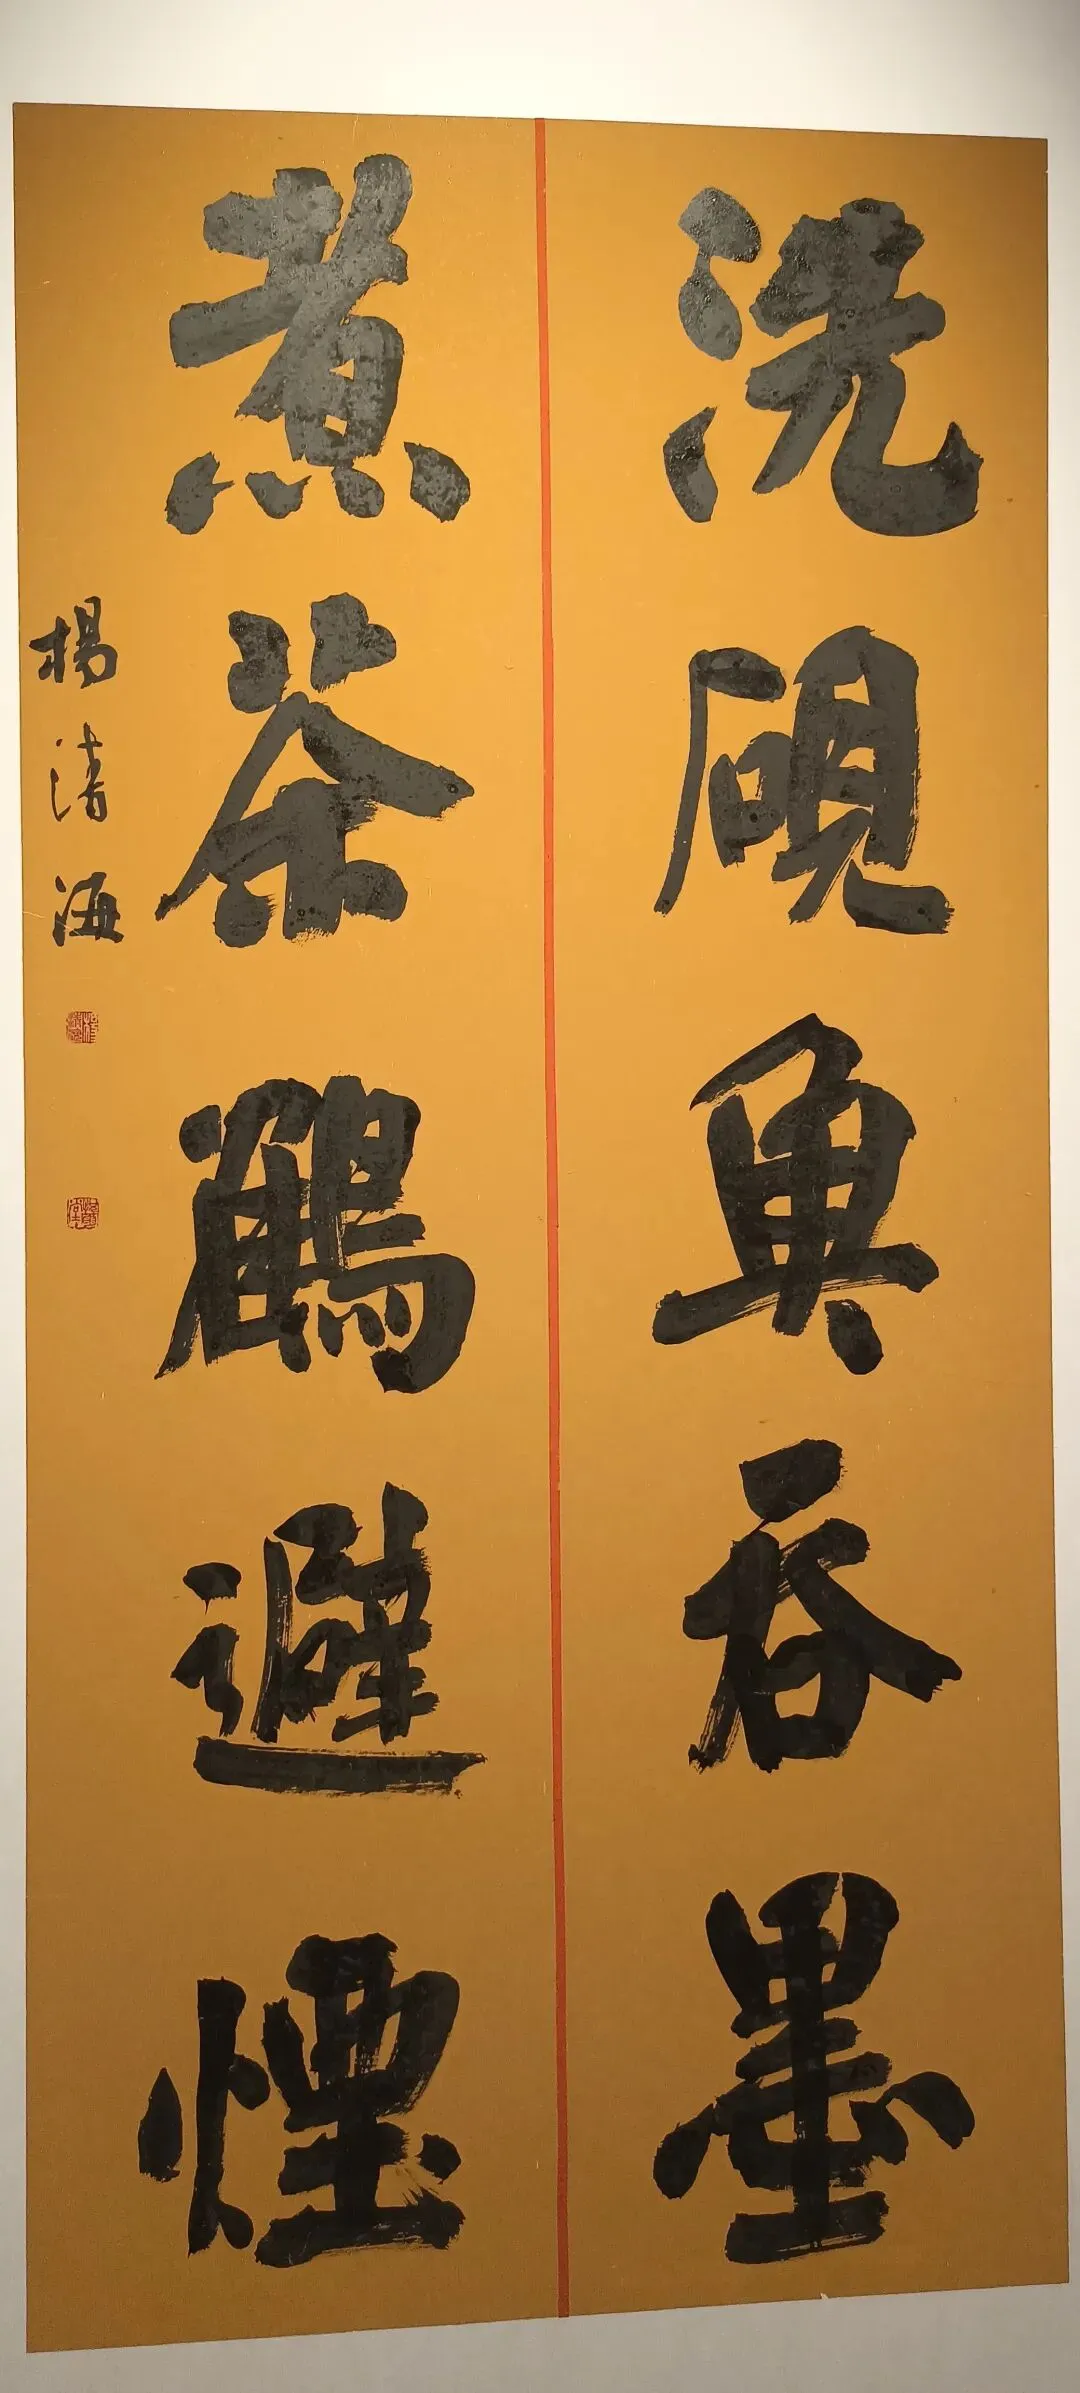 洗硯魚吞墨
煮茶鶴避煙
楊清海